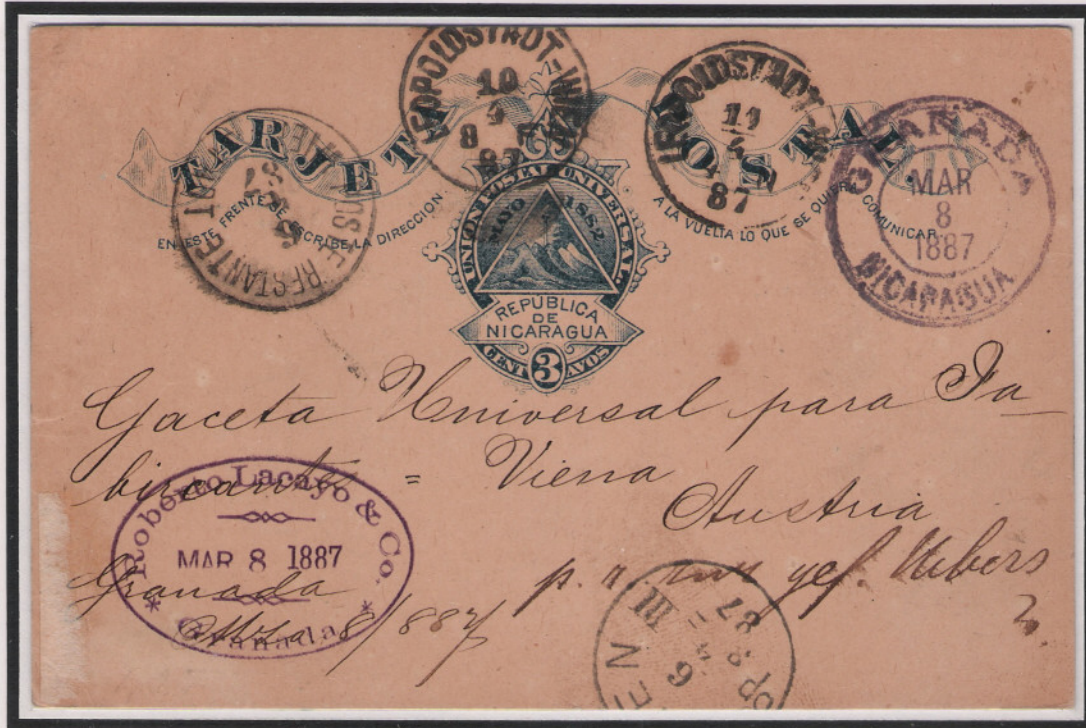 TARJETA POSTAL.
LEOPOLDSTADT-WIEN
10
4
8 F
87
LEOPOLDSTADT-WIEN
11
4
87
GRANADA
MAR
8
1887
NICARAGUA
POSTE RESTANTE
EN ESTE FRENTE SE ESCRIBE LA DIRECCION
A LA VUELTA LO QUE SE QUIERA COMUNICAR.
UNION POSTAL UNIVERSAL.
MAYO 1882
REPÚBLICA
DE
NICARAGUA
CENT 3 AVOS
Gaceta Universal para Fa-
bricantes = Viena
Austria
Roberto Lacayo & Co.
MAR 8 1887
* Granada *
Granada
8/887
III
9
4
87